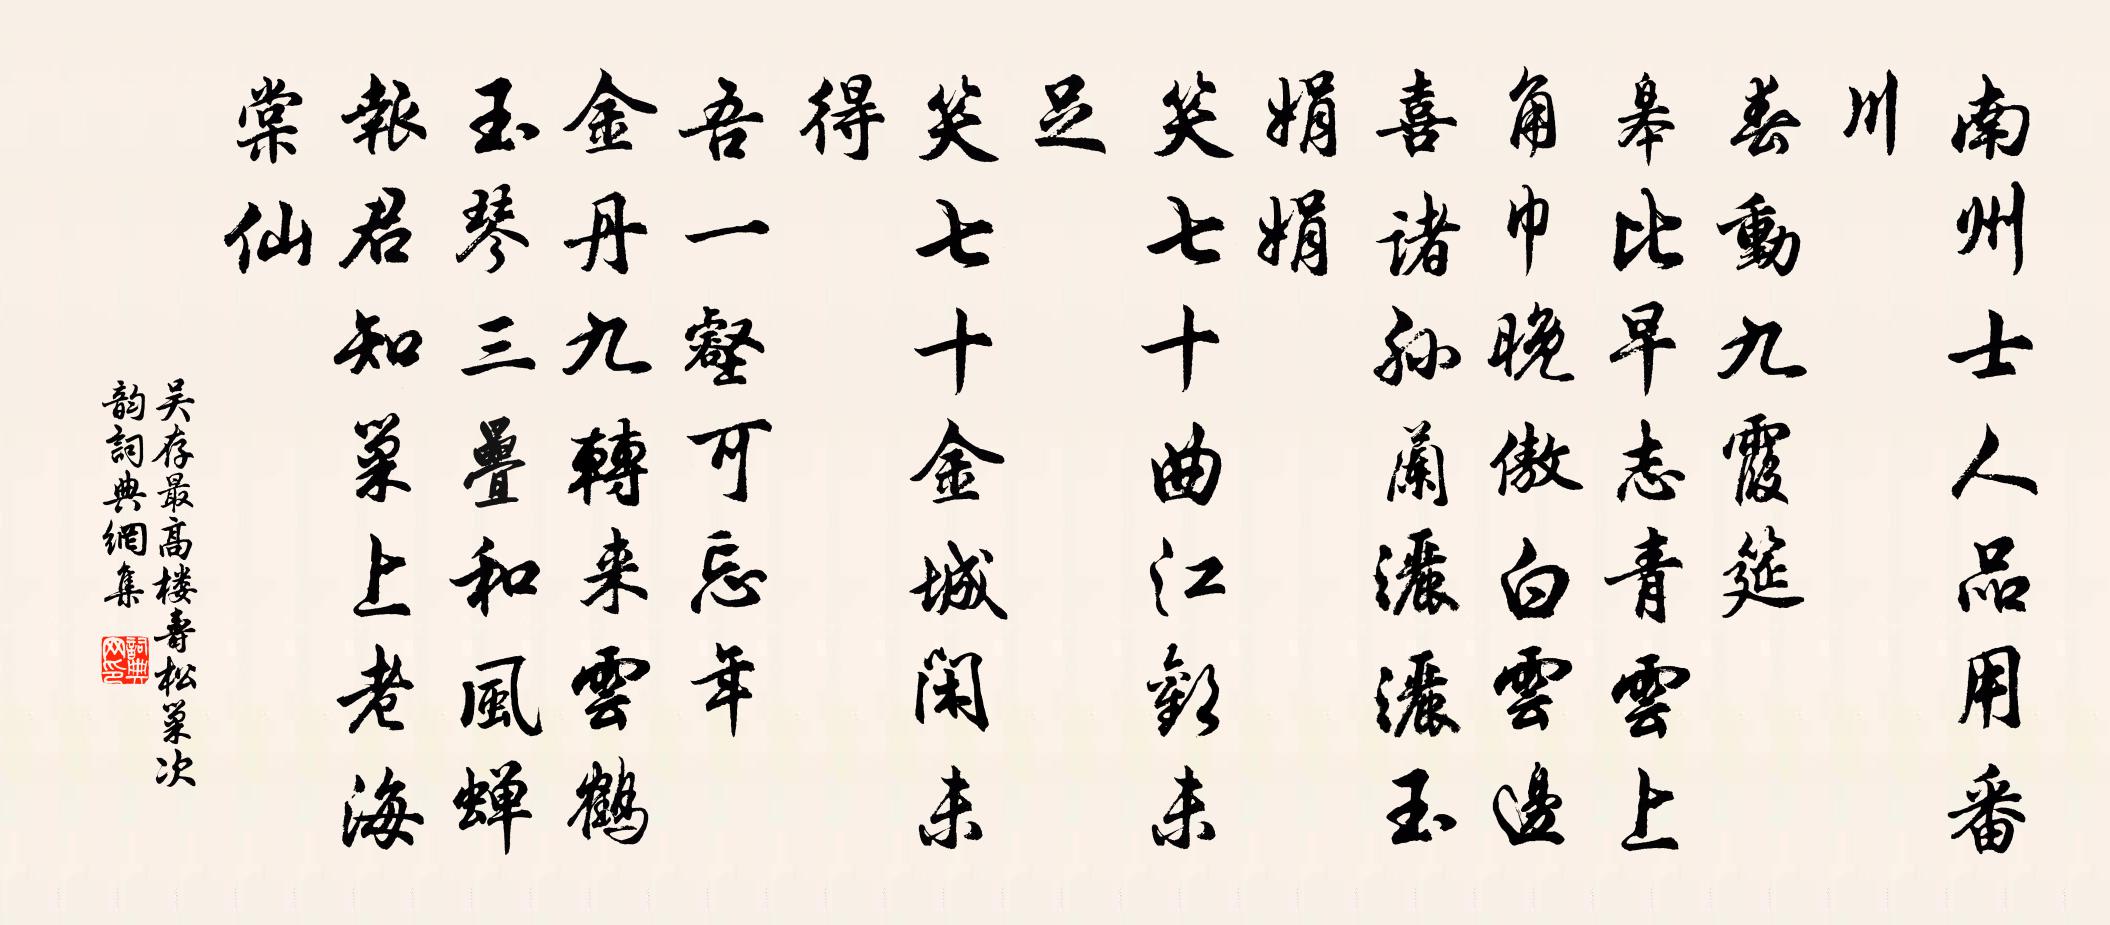 南州士人品用番
川
春動九霞筵
皋比早志青雲上
角巾晚傲白雲邊
喜諸孫蘭灑灑玉
娟娟
笑七十曲江歡未
足
笑七十金城閑未
得
吾一壑可忘年
金丹九轉来雲鶴
玉琴三疊和風蝉
報君知巢上老海
棠仙
吴存最高楼壽松巢次
韵詞典網集
詞典
网印